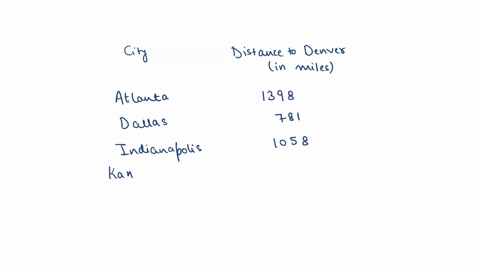 City Distance to Denver
(in miles)
Atlanta 1398
Dallas 781
Indianapolis 1058
Kan